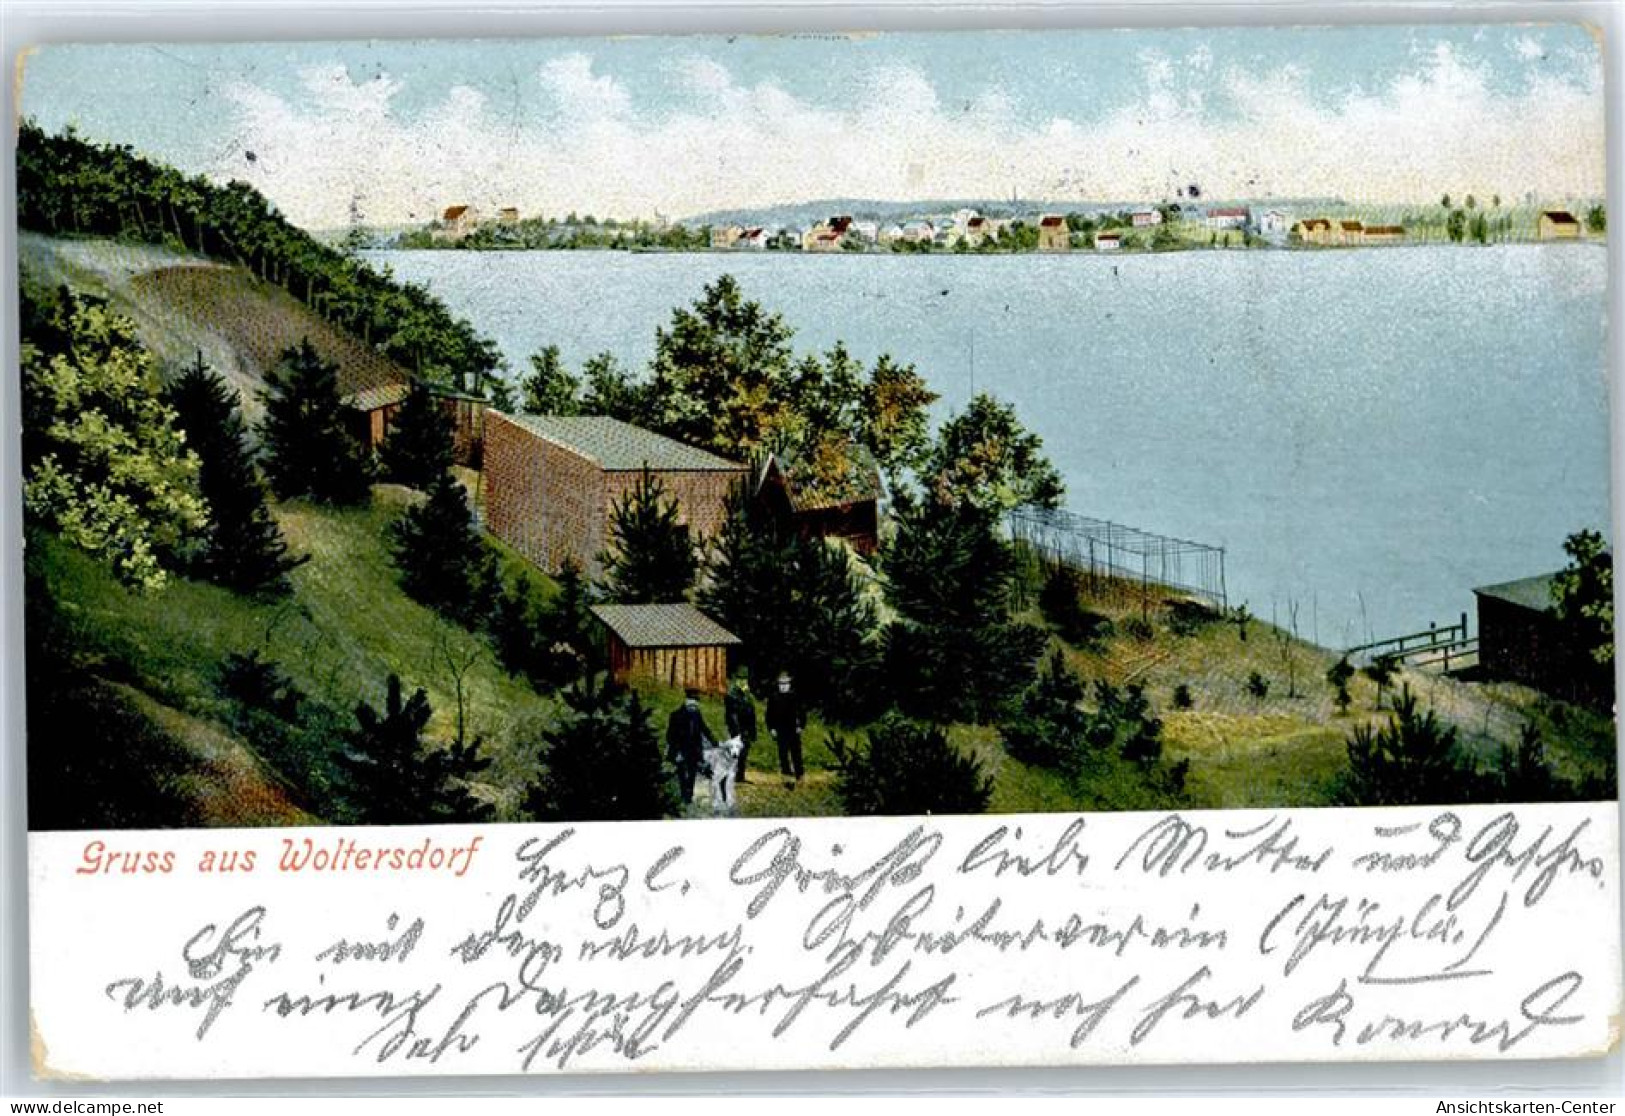 Gruss aus Woltersdorf
Herzl. Grüße liebe Mutter und Geschw.
Bin mit dem evang. Arbeiterverein
auf einer Dampferfahrt nach hier Konrad
Sehr schön
Ansichtskarten-Center